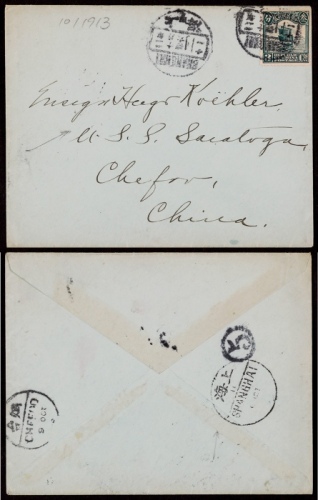 10/1913
SHANGHAI
Ensign Hugo Koehler.
U. S. S. Saratoga,
Chefoo,
China.
上海
SHANGHAI
CHEFOO